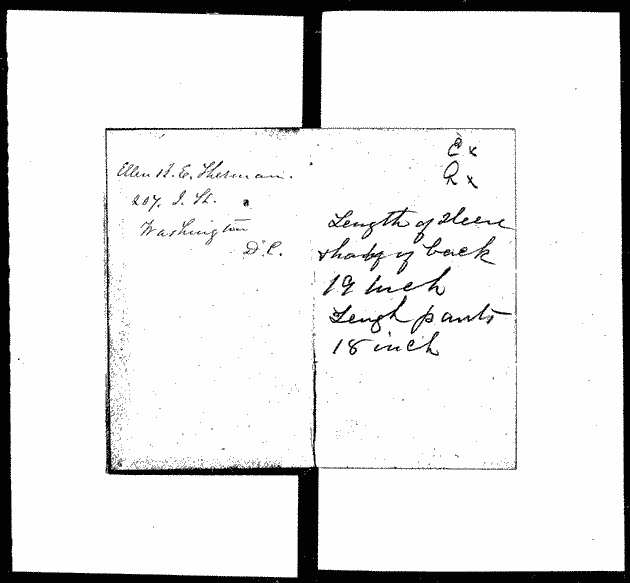 Ellen B. E. Sherman.
207. I. St.
Washington
D.C.
Ex
Rx
Length of sleeve
of back
19 Inch
Lengh pants
18 inch